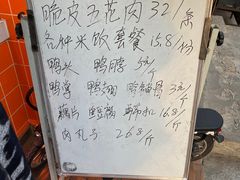 脆皮五花肉 32/条
各种米饭套餐 15.8/份
鸭头 鸭脖 5元/
鸭掌 鸭翅 3元/
藕片 16.8/斤
肉丸子 26.8/斤